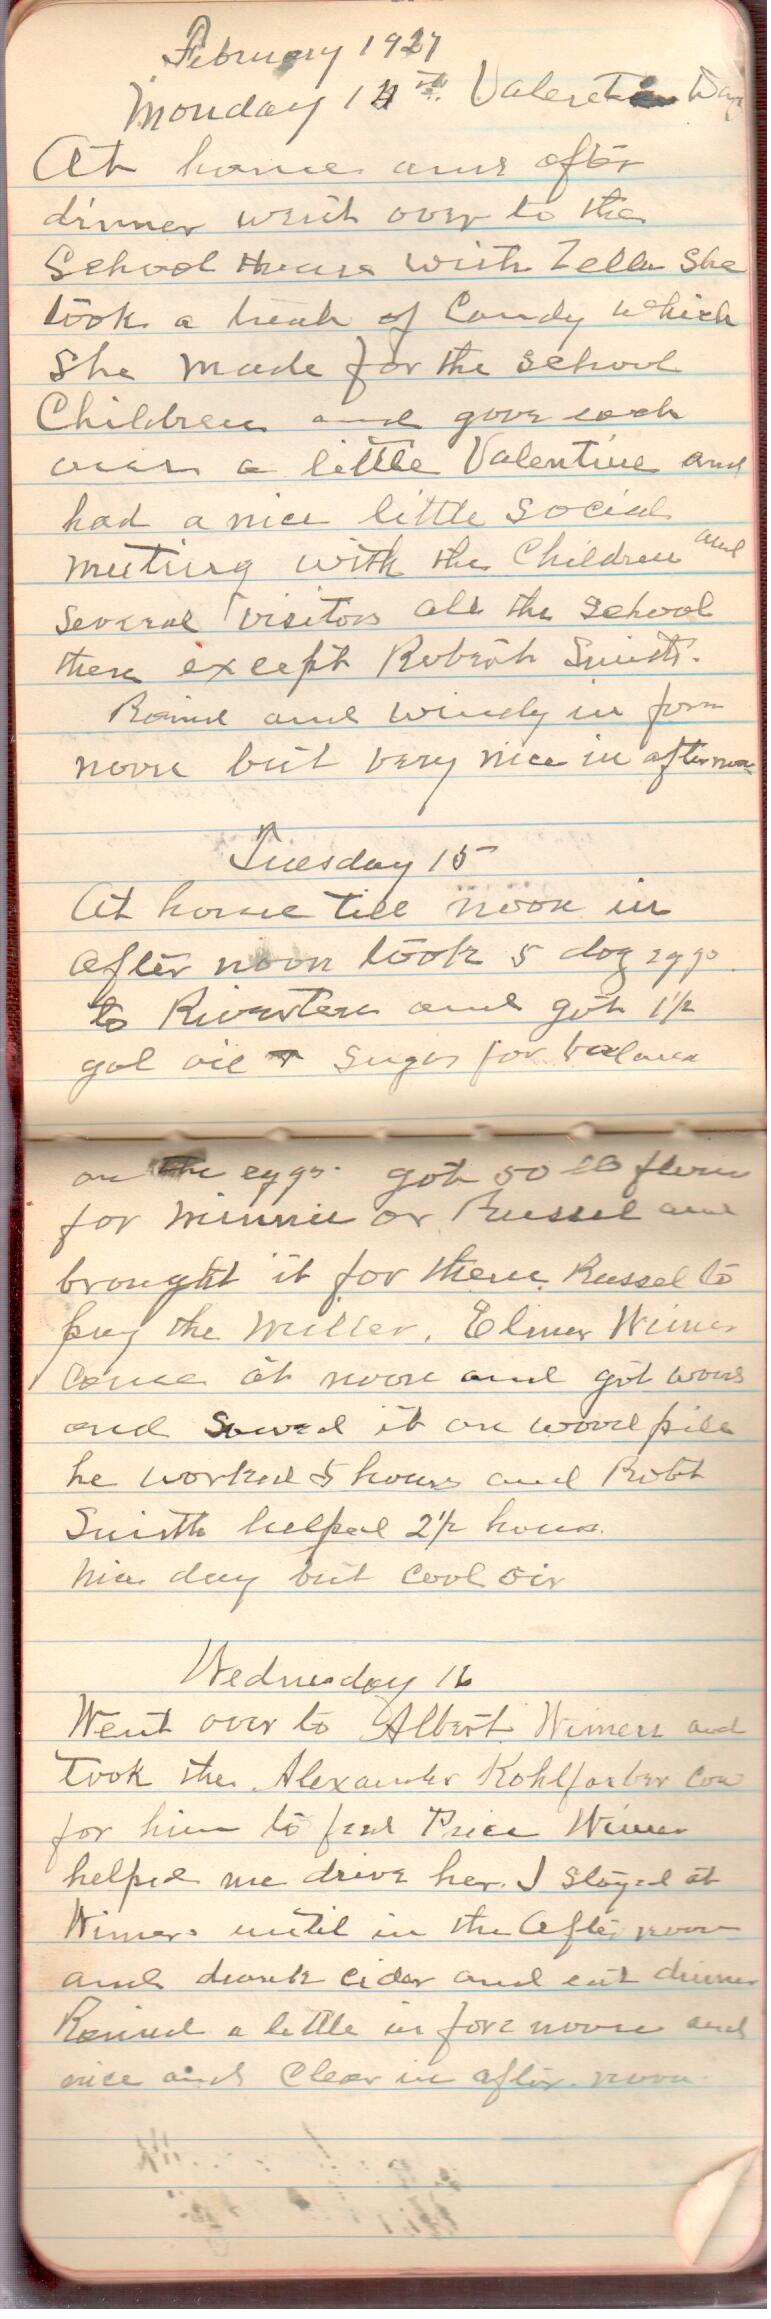 February 1927
Monday 14th. Valentin Day
At home and after
dinner went over to the
School House with Zella She
took a treat of Candy which
She made for the School
Children and gove each
one a little Valentine and
had a nice little Social
meeting with the Children and
Several visitors all the School
there except Robert Smith.
Raind and windy in fore
noon but very nice in afternoon
Tuesday 15
At home till noon in
after noon took 5 dog eggs
to Riverton and got 1 1/2
gal oil + Sugar for balance
on the eggs. got 50 lb flour
for Minnie or Russel and
brought it for them. Russel to
pay the Miller. Elmer Wimer
came at noon and got wood
and Sawed it on wood pile
he worked 5 hours and Robt
Smith helped 2 1/2 hours.
nice day but cool air
Wednesday 16
Went over to Albert Wimers and
took the Alexander Kohlfarber cow
for him to feed Price Wimer
helped me drive her. I stayed at
Wimers until in the After noon
and drank cider and eat dinner
Rained a little in fore noon and
nice and Clear in after noon